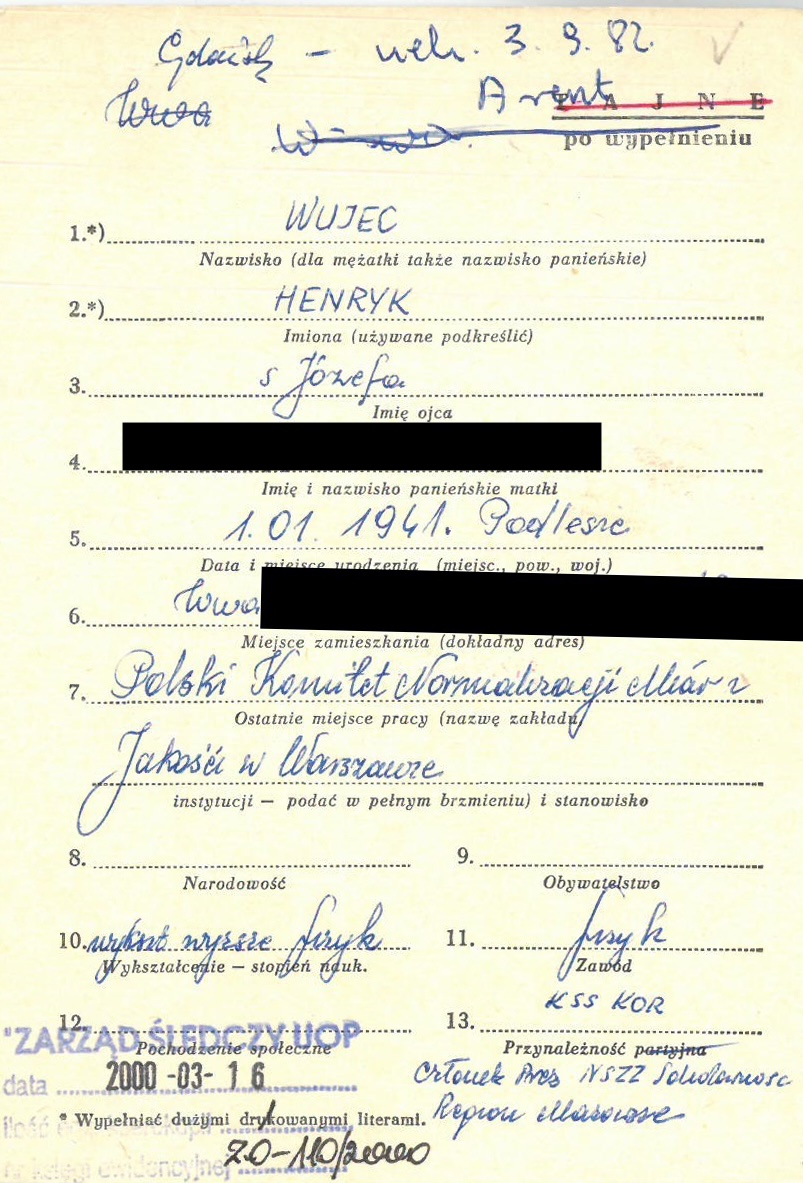 Gdańsk - uch. 3. 9. 82.
Wwa Arent TAJNE
po wypełnieniu
1.*) WUJEC
Nazwisko (dla mężatki także nazwisko panieńskie)
2.*) HENRYK
Imiona (używane podkreślić)
3. s Józefa
Imię ojca
4.
Imię i nazwisko panieńskie matki
5. 1.01. 1941. Podlesie
Data i miejsce urodzenia (miejsc., pow., woj.)
6. Wwa
Miejsce zamieszkania (dokładny adres)
7. Polski Komitet Normalizacji Miar i
Ostatnie miejsce pracy (nazwę zakładu,
Jakości w Warszawie
instytucji — podać w pełnym brzmieniu) i stanowisko
8. 9.
Narodowość Obywatelstwo
10. wykszt wyższe fizyk 11. fizyk
Wykształcenie — stopień nauk. Zawód
KSS KOR
12. 13.
"ZARZĄD ŚLEDCZY UOP
Pochodzenie społeczne Przynależność partyjna
data 2000-03-16 Członek Prez NSZZ Solidarność
* Wypełniać dużymi drukowanymi literami. Region Mazowsze
ilość
nr księgi ewidencyjnej ZO-110/2000